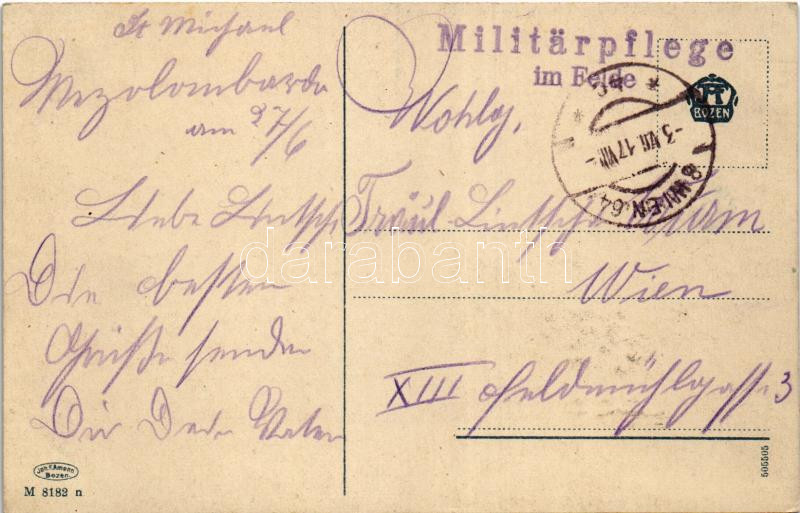 St Michael
Mezolombardo
am 27/6
Liebe Lintschi
Die besten
Grüße sendet
Dir Dein Vater
Joh. F. Amonn
Bozen.
M 8182 n
Militärpflege
im Felde
BOZEN
8 WIEN 64
-3.VII.17.VIII-
Wohlg,
Fräul. Lintschi
Wien
XIII Feldmühlgasse 3
505505
darabanth